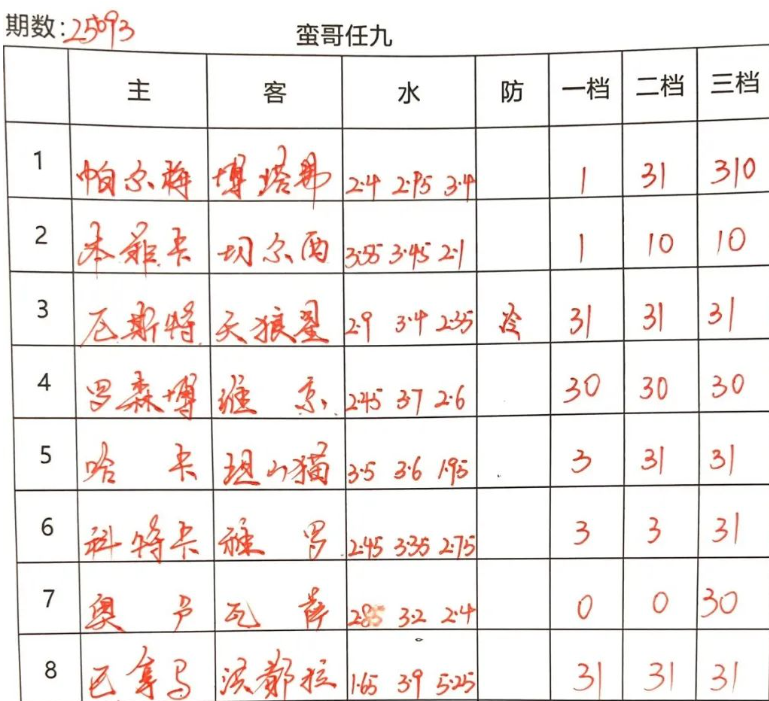 期数:25093
蛮哥任九
主 客 水 防 一档 二档 三档
1 帕尔梅 博塔弗 2.4 2.95 3.4 1 31 310
2 本菲卡 切尔西 3.55 3.45 2.1 1 10 10
3 厄斯特 天狼星 2.9 3.4 2.35 冷 31 31 31
4 罗森博 维京 2.45 3.7 2.6 30 30 30
5 哈卡 坦山猫 3.5 3.6 1.95 3 31 31
6 科特卡 雅罗 2.45 3.35 2.75 3 3 31
7 奥卢 瓦萨 2.85 3.2 2.4 0 0 30
8 巴拿马 洪都拉 1.65 3.9 5.25 31 31 31